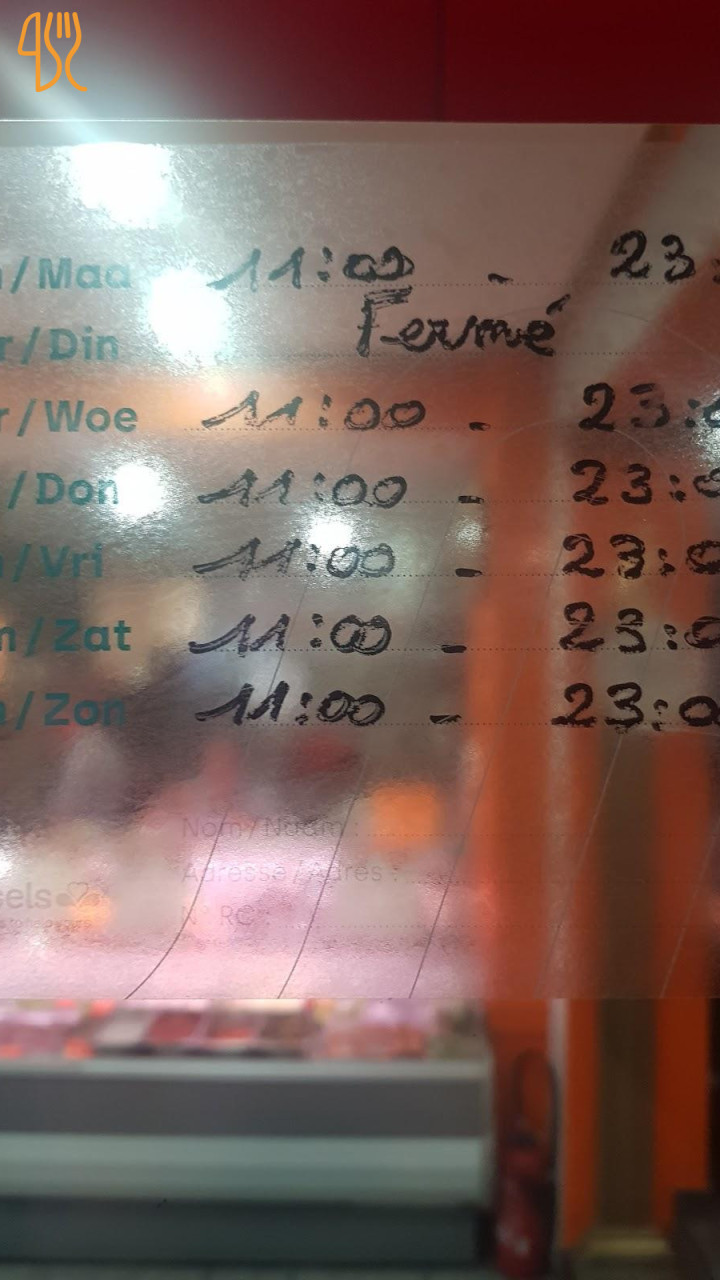 /Maa 11:00 - 23:
r/Din Fermé
r/Woe 11:00 - 23:0
/Don 11:00 - 23:0
/Vri 11:00 - 23:0
n/Zat 11:00 - 23:0
/Zon 11:00 - 23:0
Nom/Naam :
Adresse/Adres :
sels
N° RC :